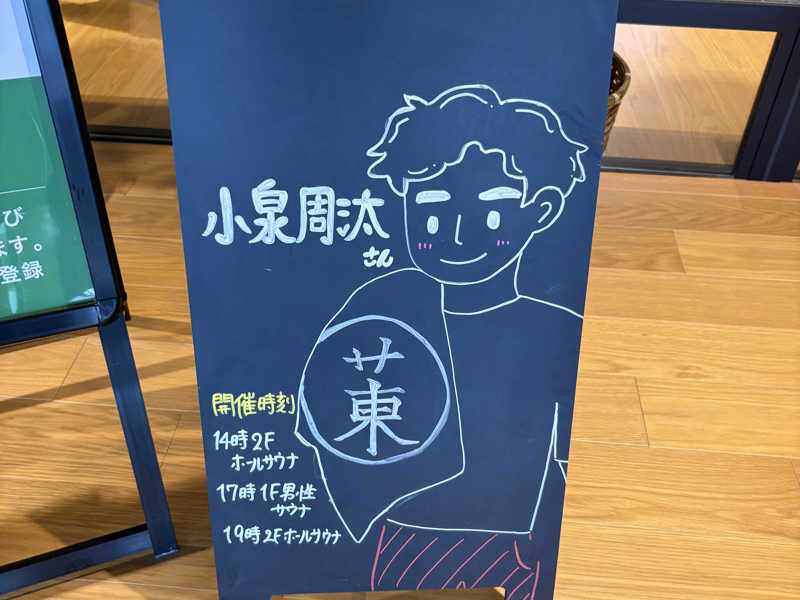 び
ます。
登録
小泉周汰
さん
菄
開催時刻
14時 2F
ホールサウナ
17時 1F男性
サウナ
19時 2Fホールサウナ